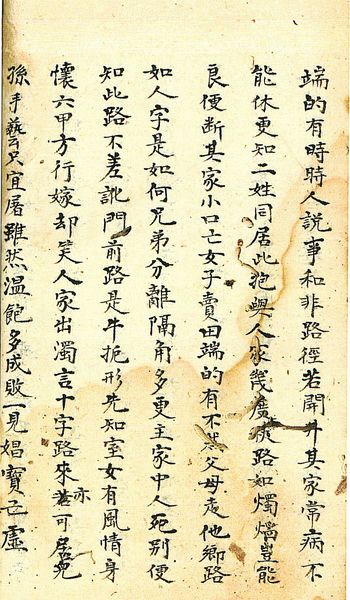 端的有時時人説事和非路徑若開井其家常病不
能休更知二姓同居此抱與人家幾度
路如燭焰豈能
良便断其家小口亡女子賣田端的有不然父母走他鄉路
如人字是如何兄弟分離隔角多更主家中人死別便
知此路不差訛門前路是牛扼形先知室女有風情身
懷六甲方行嫁却笑人家出濁言十字路來亦可居児
孫手藝只宜屠雖然温飽多成敗一見娼
虚